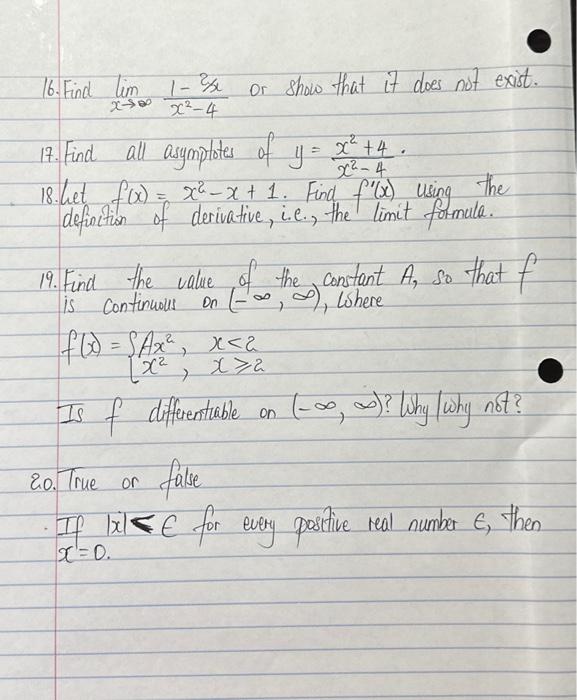 16. Find lim x→∞ (1 - 2/x)/(x² - 4) or show that it does not exist.
17. Find all asymptotes of y = (x² + 4)/(x² - 4).
18. Let f(x) = x² - x + 1. Find f'(x) using the
definition of derivative, i.e., the limit formula.
19. Find the value of the constant A, so that f
is continuous on (-∞, ∞), where
f(x) = { Ax², x < 2
x², x ⩾ 2
Is f differentiable on (-∞, ∞)? Why/why not?
20. True or false
. If |x| < ϵ for every positive real number ϵ, then
x = 0.